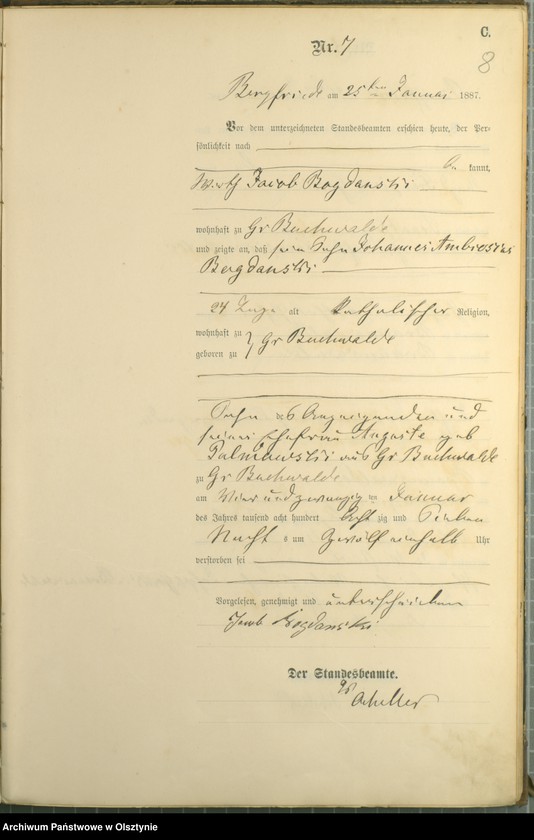 C.
8
Nr. 7
Bergfriede am 25ten Januar 1887.
Vor dem unterzeichneten Standesbeamten erschien heute, der Per-
sönlichkeit nach
be kannt,
Wirth Jacob Bogdanski
wohnhaft zu Gr Buchwalde
und zeigte an, daß sein Sohn Johannes Ambrosius
Bogdanski
24 Tage alt katholischer Religion,
wohnhaft zu
geboren zu } Gr Buchwalde
Sohn des Anzeigenden und
seiner Ehefrau Auguste geb
aus Gr Buchwalde
zu Gr Buchwalde
am Vier und zwanzigten Januar
des Jahrs tausend acht hundert acht zig und sieben
Nachts um zwölf einhalb Uhr
verstorben sei
Vorgelesen, genehmigt und unterschrieben
Jacob Bogdanski
Der Standesbeamte.
Archiwum Państwowe w Olsztynie